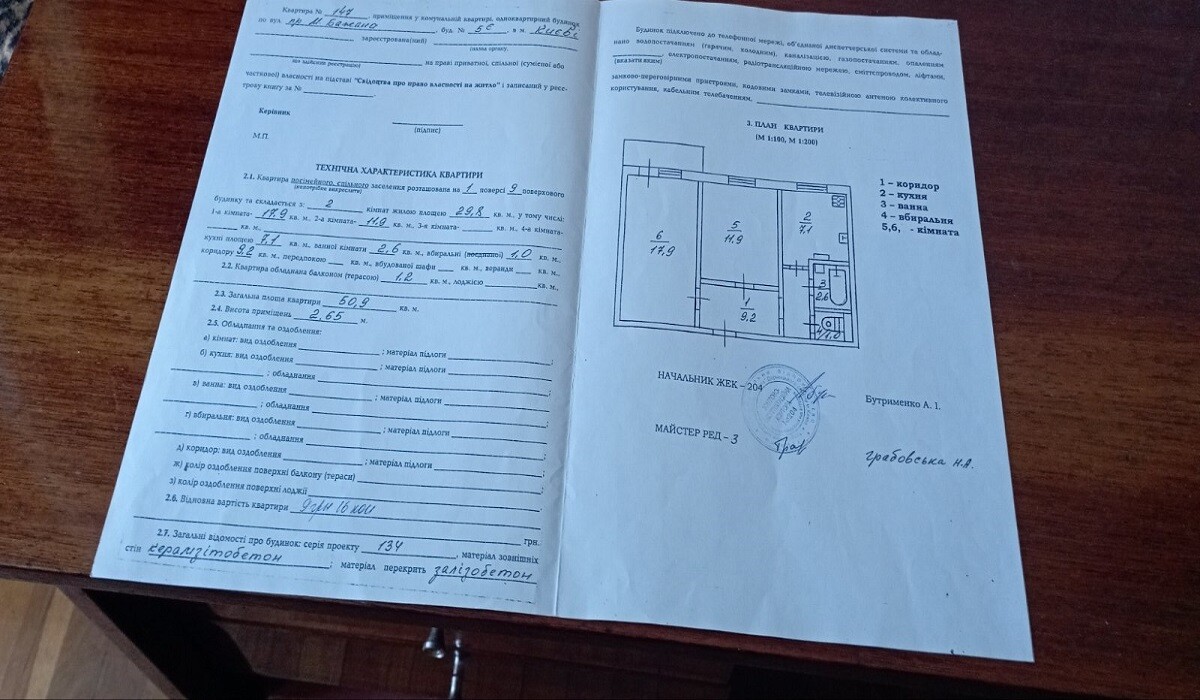 Квартира № 147, приміщення у комунальній квартирі, одноквартирний будинок
по вул. пр М Бажана, буд. № 5є, в м. Києві
зареєстрована(ний)
(назва органу,
що здійснив реєстрацію) на праві приватної, спільної (сумісної або
часткової) власності на підставі "Свідоцтва про право власності на житло" і записаний у реєс-
трову книгу за №
Керівник
(підпис)
М.П.
ТЕХНІЧНА ХАРАКТЕРИСТИКА КВАРТИРИ
2.1. Квартира посімейного, спільного заселення розташована на 1 поверсі 9 поверхового
(непотрібне викреслити)
будинку та складається з: 2 кімнат жилою площею 29,8 кв. м., у тому числі:
1-а кімната- 17,9 кв. м., 2-а кімната- 11,9 кв. м., 3-я кімната- кв. м., 4-а кімната-
кв. м.,
кухні площею 7,1 кв. м., ванної кімнати 2,6 кв. м., вбиральні (поєднаної) 1,0 кв. м.,
коридору 9,2 кв. м., передпокою кв. м., вбудованої шафи кв. м., веранди кв. м.,
2.2. Квартира обладнана балконом (терасою) 1,2 кв. м., лоджією кв. м.,
2.3. Загальна площа квартири 50,9 кв. м.
2.4. Висота приміщень 2,65 м.
2.5. Обладнання та оздоблення:
а) кімнат: вид оздоблення ; матеріал підлоги ;
б) кухня: вид оздоблення ; матеріал підлоги
; обладнання ;
в) ванна: вид оздоблення ; матеріал підлоги
; обладнання ;
г) вбиральня: вид оздоблення ; матеріал підлоги
; обладнання ;
д) коридор: вид оздоблення ; матеріал підлоги ;
ж) колір оздоблення поверхні балкону (тераси) ;
з) колір оздоблення поверхні лоджії .
2.6. Відновна вартість квартири 9 грн 16 коп
грн.
2.7. Загальні відомості про будинок: серія проекту 134, матеріал зовнішніх
стін керамзітобетон; матеріал перекрить залізобетон
Будинок підключено до телефонної мережі, об'єднаної диспетчерської системи та облад-
нано водопостачанням (гарячим, холодним), каналізацією, газопостачанням, опаленням
електропостачанням, радіотрансляційною мережею, сміттєпроводом, ліфтами,
(вказати яким)
замково-переговорними пристроями, кодовими замками, телевізійною антеною колективного
користування, кабельним телебаченням,
3. ПЛАН КВАРТИРИ
(М 1:100, М 1:200)
6
17,9
5
11,9
2
7,1
1
9.2
3
2,6
4/1,0
1 – коридор
2 – кухня
3 – ванна
4 – вбиральня
5,6, - кімната
НАЧАЛЬНИК ЖЕК – 204
Бутрименко А. І.
МАЙСТЕР РЕД – 3
Грабовська Н.А.